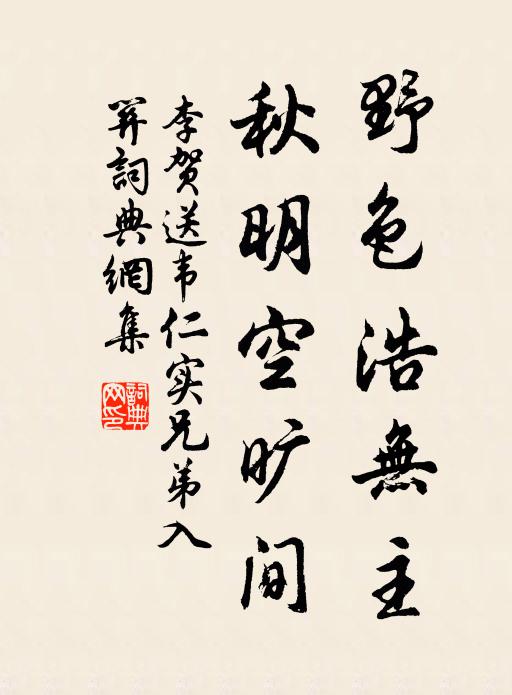 野色浩無主
秋明空旷间
李贺送韦仁实兄弟入
關詞典網集
詞典網印